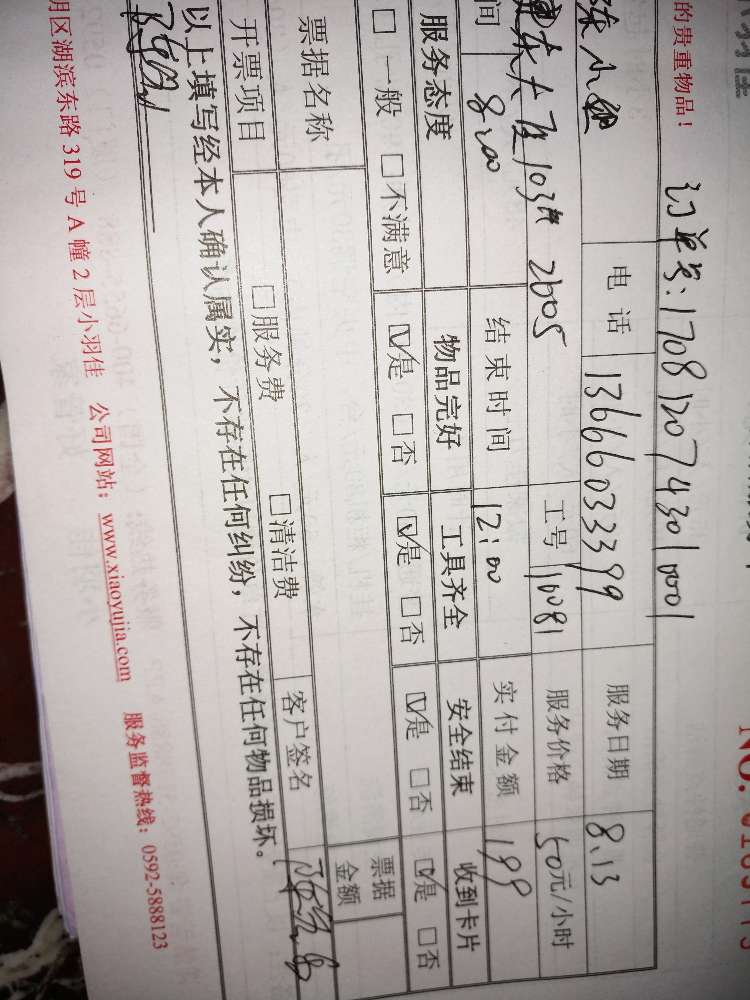 的贵重物品！
订单号：1708120743010001
电话 13666033399 服务日期 8.13
大厦103# 2605 工号 10081 服务价格 50元/小时
间 8:00 结束时间 12:00 实付金额 199
服务态度 物品完好 工具齐全 安全结束 收到卡片
□一般 □不满意 ☑是 □否 ☑是 □否 ☑是 □否 ☑是 □否
票据名称 票据金额
开票项目 □服务费 □清洁费 客户签名
以上填写经本人确认属实，不存在任何纠纷，不存在任何物品损坏。
明区湖滨东路319号A幢2层小羽佳 公司网站：www.xiaoyujia.com 服务监督热线：0592-5888123